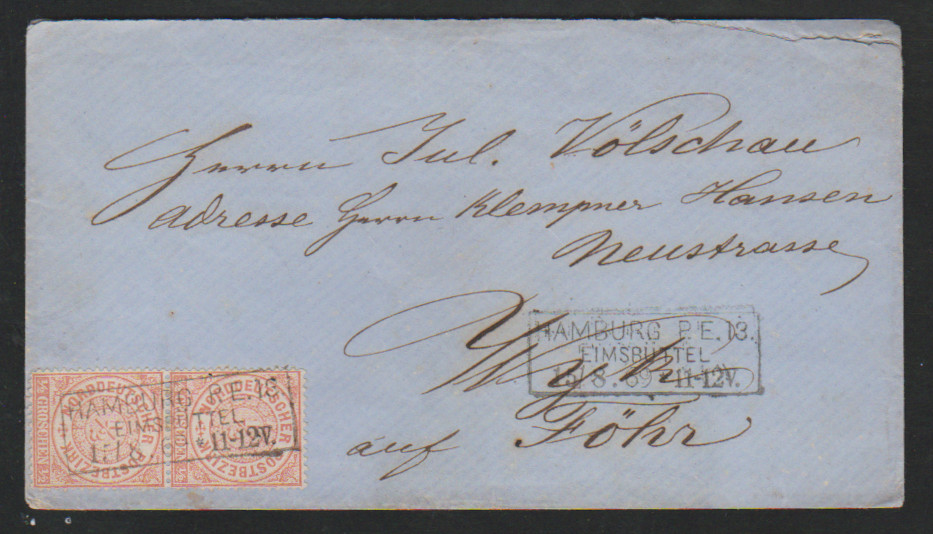 Herrn Jul. Völschau
Adresse Herrn Klempner Hansen
Neustrasse
Wyk
auf Föhr
HAMBURG P.E.13.
EIMSBÜTTEL
15/8.69*11-12V.
NORDDEUTSCHER
POSTBEZIRK
GROSCHEN
NORDDEUTSCHER
POSTBEZIRK
HAMBURG P.E.13.
*11-12V.